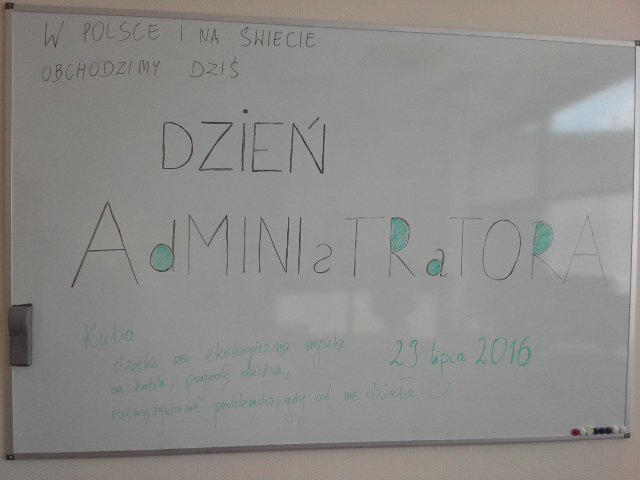 W POLSCE I NA ŚWIECIE
OBCHODZIMY DZIŚ
DZIEŃ
AdMINIsTRaTORA
Kuba
dzięki za ekologiczną myszkę
na kablu, pogodę ducha,
rozwiązywanie problemów, gdy coś nie działa. :)
29 lipca 2016